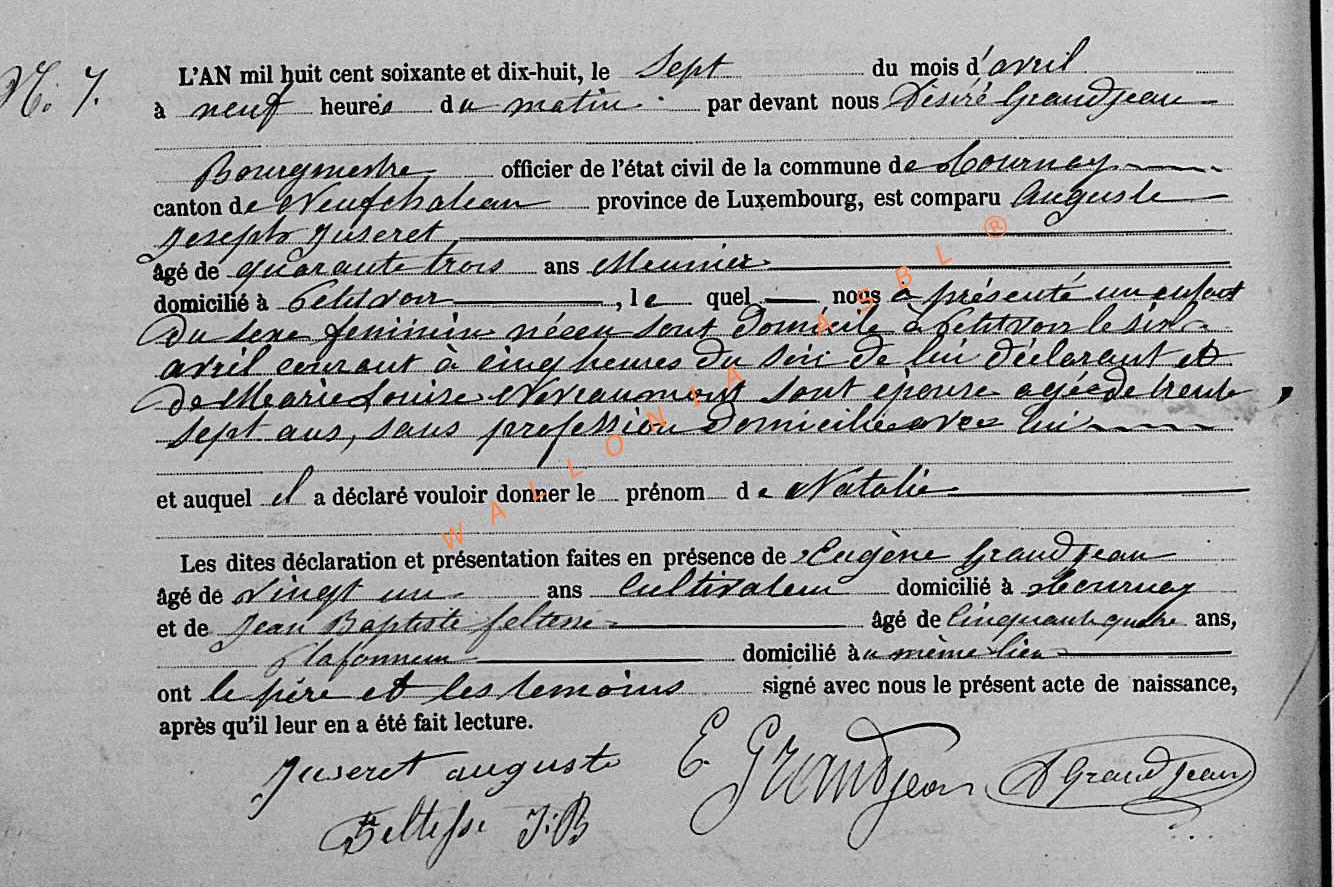 N. 7.
L'AN mil huit cent soixante et dix-huit, le sept du mois d'avril
à neuf heures du matin par devant nous Désiré Grandjean
Bourgmestre officier de l'état civil de la commune de Tournay
canton de Neufchateau province de Luxembourg, est comparu Auguste
Joseph Juseret
âgé de quarante trois ans Meunier
domicilié à Petitvoir, le quel nous a présenté un enfant
du sexe feminin née en sont domicile à Petitvoir le six
avril courant à cinq heures du soir de lui déclarant et
de Marie Louise sont épouse agée de trente
sept ans, sans profession domiciliée avec lui
et auquel il a déclaré vouloir donner le prénom de Natalie
Les dites déclaration et présentation faites en présence de Eugène Grandjean
âgé de vingt un ans Cultivateur domicilié à Tournay
et de Jean Baptiste âgé de Cinquante quatre ans,
Plafonneur domicilié au même lieu
ont le père et les temoins signé avec nous le présent acte de naissance,
après qu'il leur en a été fait lecture.
Juseret auguste E. Grandjean D Grandjean
J:B
WALLONIA ASBL ®